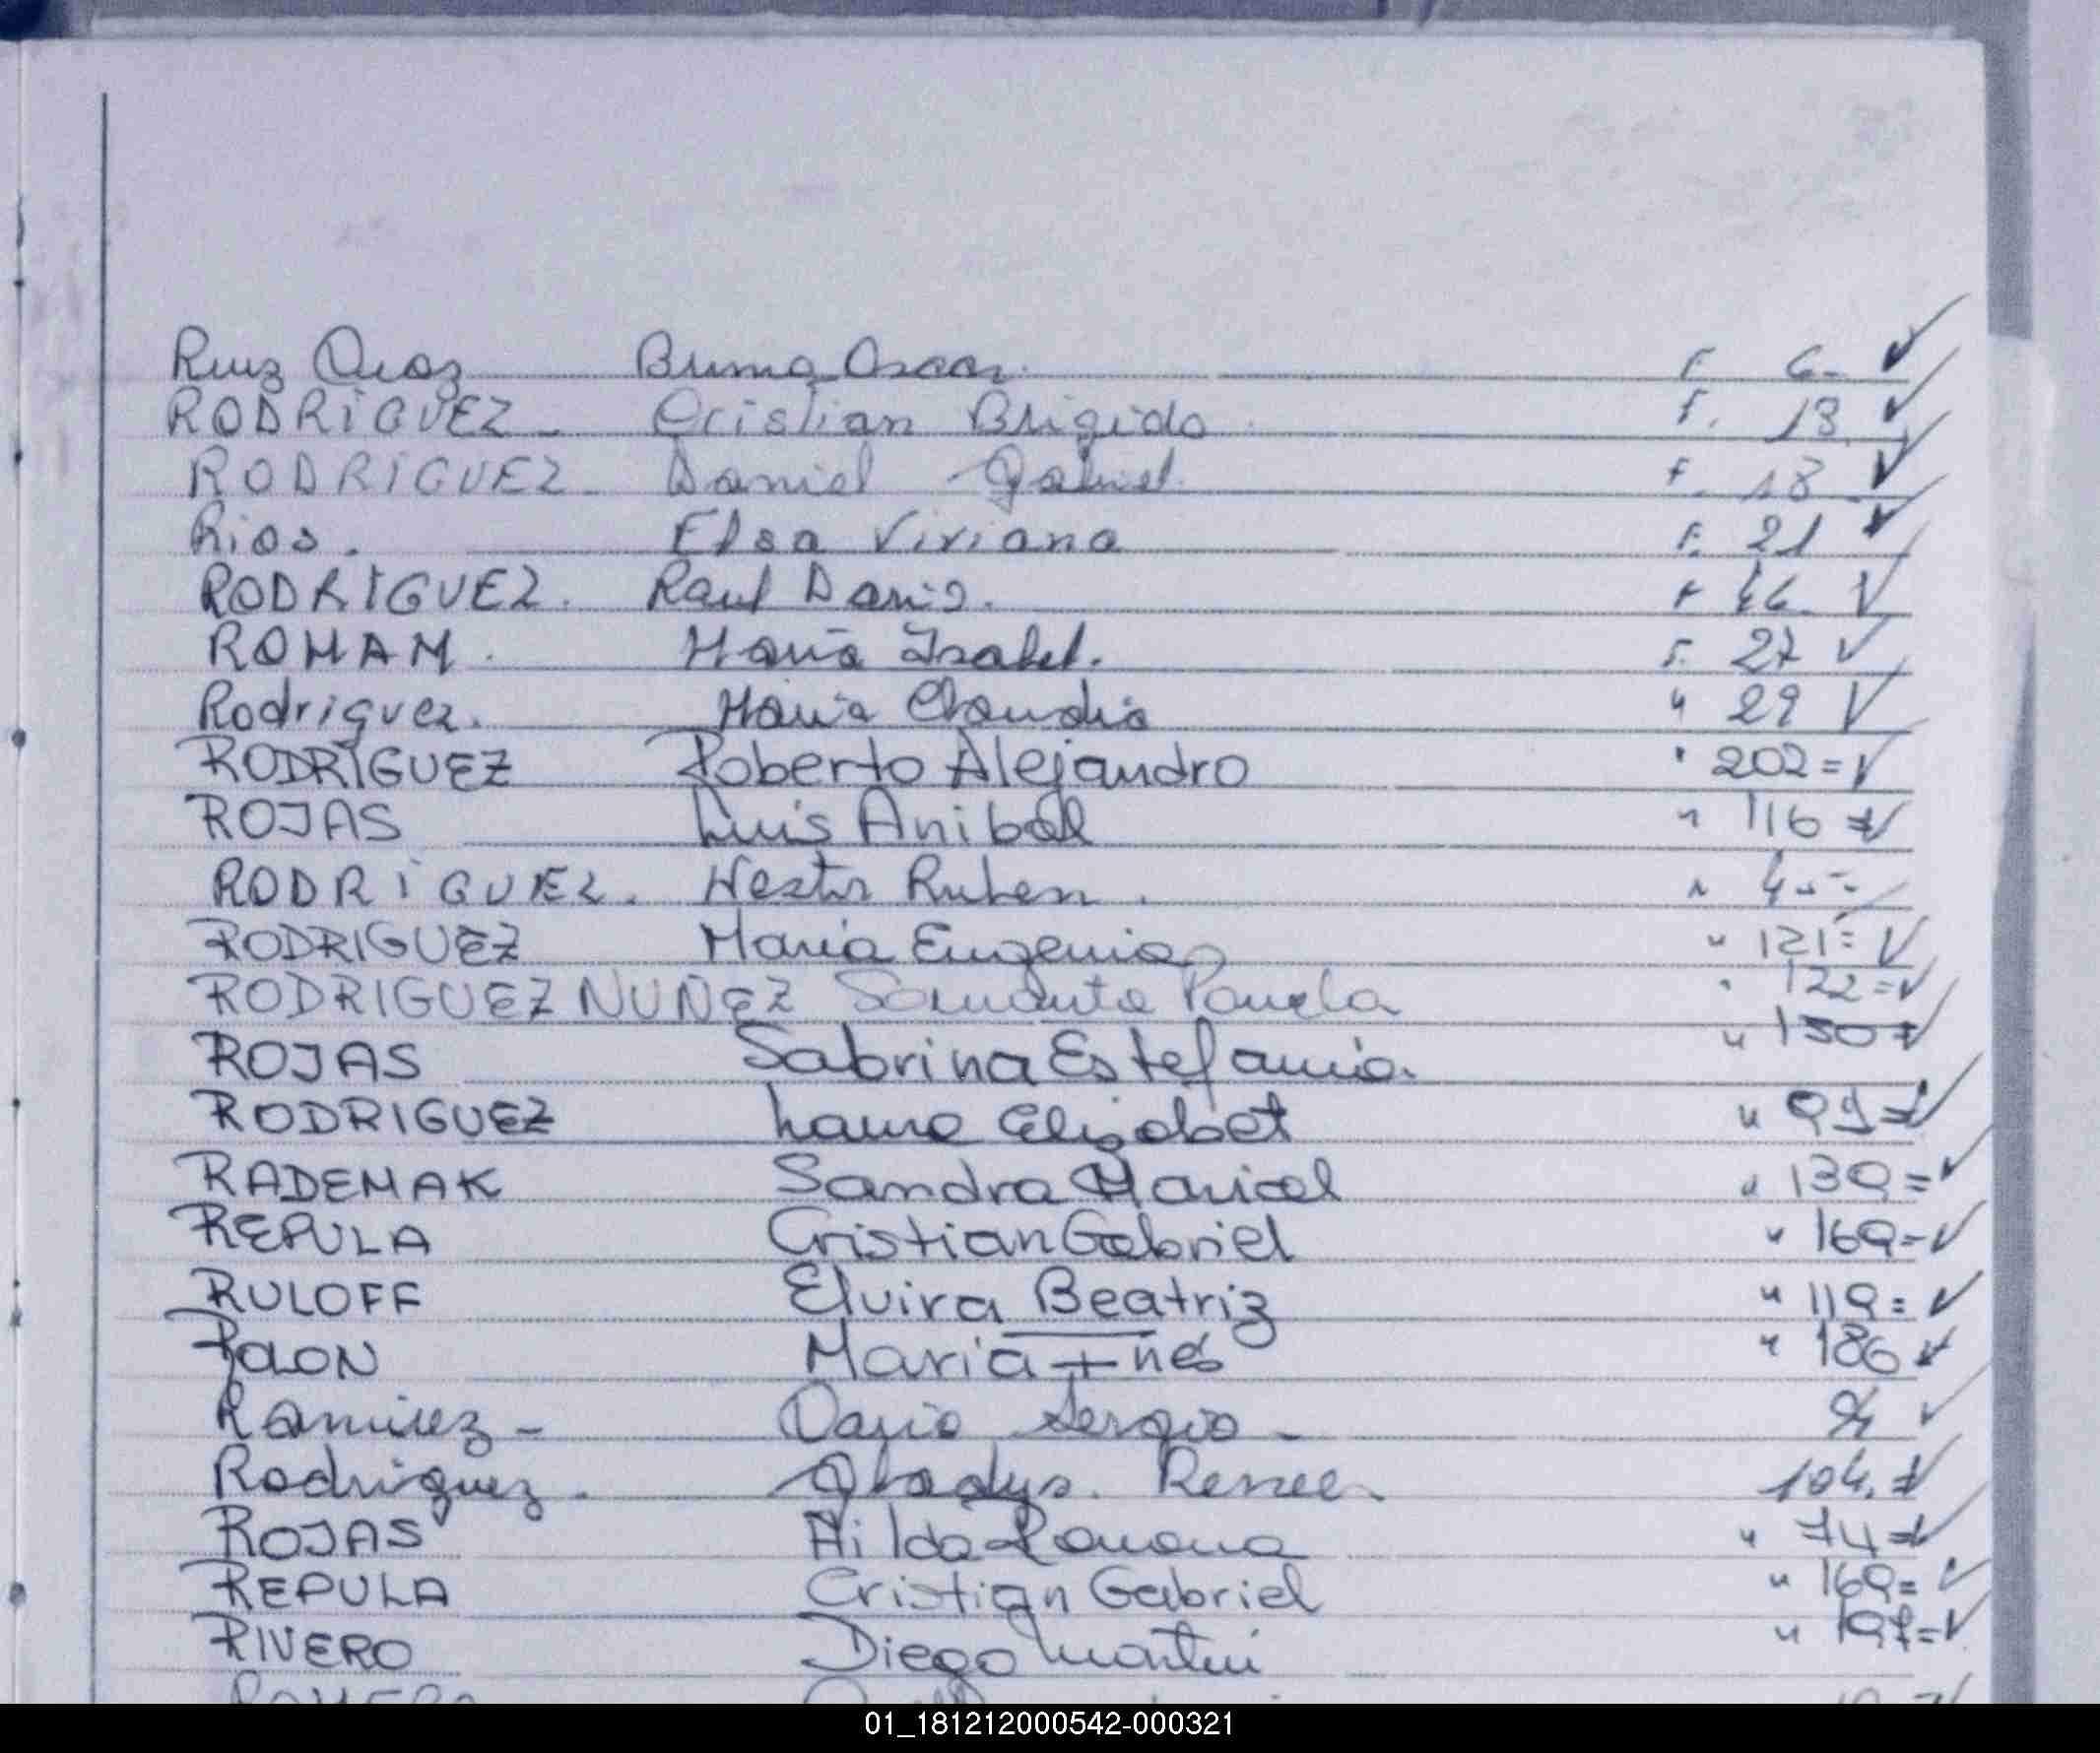 Ruiz Diaz Bruno Oscar. F. 6-
RODRIGUEZ - Cristian Brigido F. 18
RODRIGUEZ - Daniel Gabriel. F. 18
Rios. Elsa Viviana F. 21
RODRIGUEZ. Raul Dario. F
ROMAN. Maria Isabel. F. 27
Rodriguez. Maria Claudia " 29
RODRIGUEZ Roberto Alejandro " 202=
ROJAS Luis Anibal " 116=
RODRIGUEZ. Nestor Ruben.
RODRIGUEZ Maria Eugenia " 121=
RODRIGUEZ NUÑEZ Pamela " 122=
ROJAS Sabrina Estefania. " 130=
RODRIGUEZ Laura Elizabet " 99=
RADEMAK Sandra Maricel " 139=
REPULA Cristian Gabriel " 169=
RULOFF Elvira Beatriz " 119=
ROLON Maria Ines " 186
Ramirez - Dario Sergio -
Rodriguez. Gladys. Renee. 104.=
ROJAS Hilda Ramona " 74=
REPULA Cristian Gabriel " 169=
RIVERO Diego Martin " 197=
01_181212000542-000321